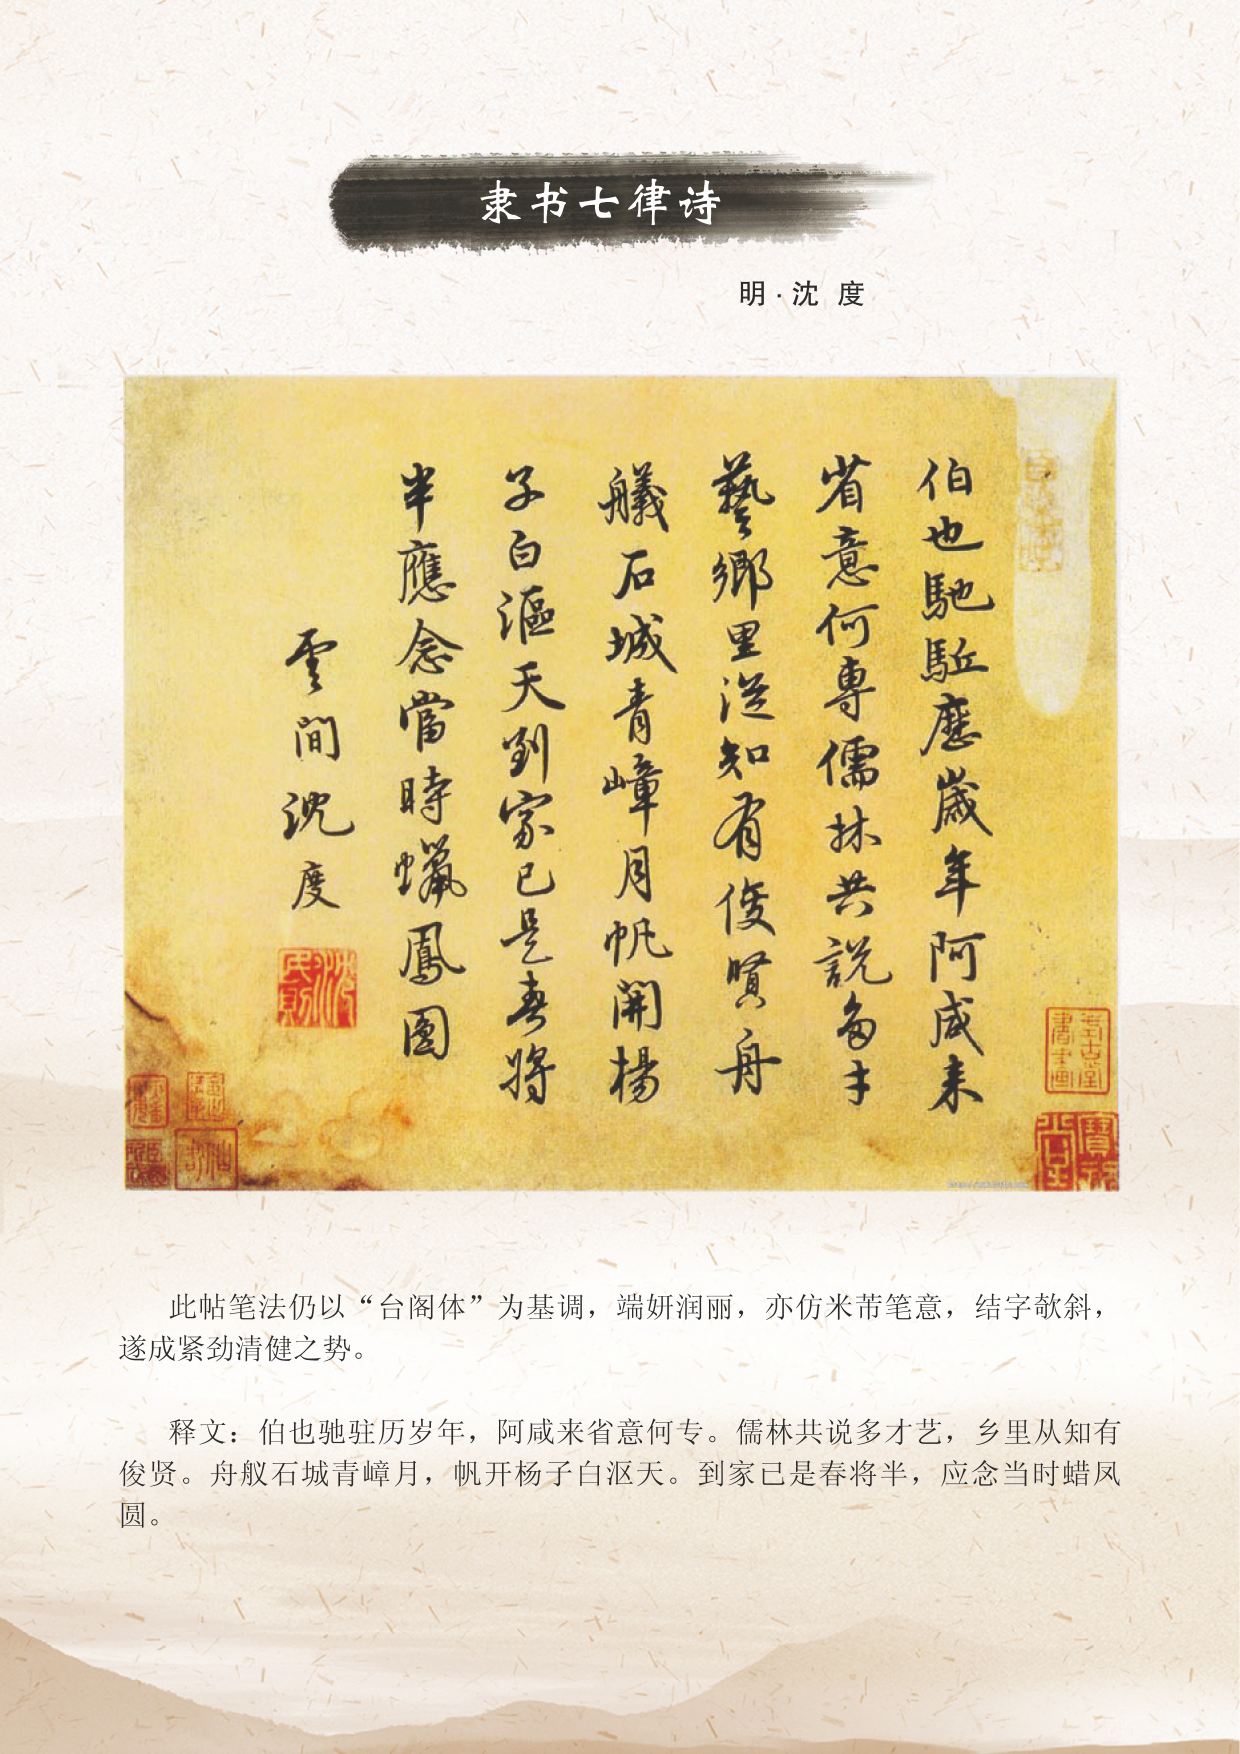 隶书七律诗
明·沈 度
伯也馳駈歷歲年阿咸来
省意何專儒林共説多才
藝鄉里従知有俊賢舟
艤石城青嶂月帆開楊
子白漚天到家已是春將
半應念當時蠟鳳圓
雲間沈度
此帖笔法仍以“台阁体”为基调，端妍润丽，亦仿米芾笔意，结字欹斜，
遂成紧劲清健之势。
释文：伯也驰驻历岁年，阿咸来省意何专。儒林共说多才艺，乡里从知有
俊贤。舟舣石城青嶂月，帆开杨子白沤天。到家已是春将半，应念当时蜡凤
圆。